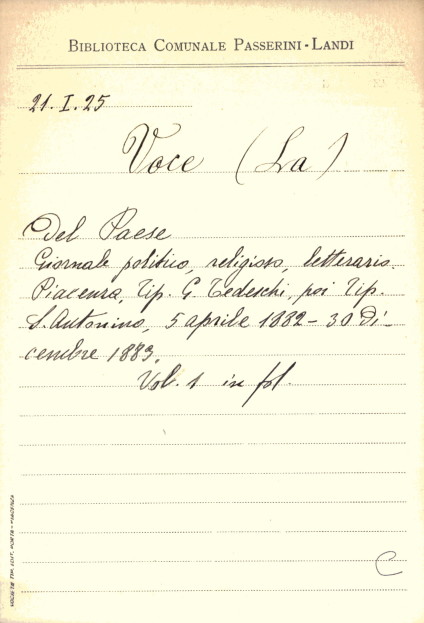 BIBLIOTECA COMUNALE PASSERINI-LANDI
21.I.25
Voce (La)
Del Paese
Giornale politico, religioso, letterario.
Piacenza, Tip. G. Tedeschi, poi Tip.
S. Antonino, 5 aprile 1882 - 30 Di-
cembre 1883.
Vol. 1 in fol.
C